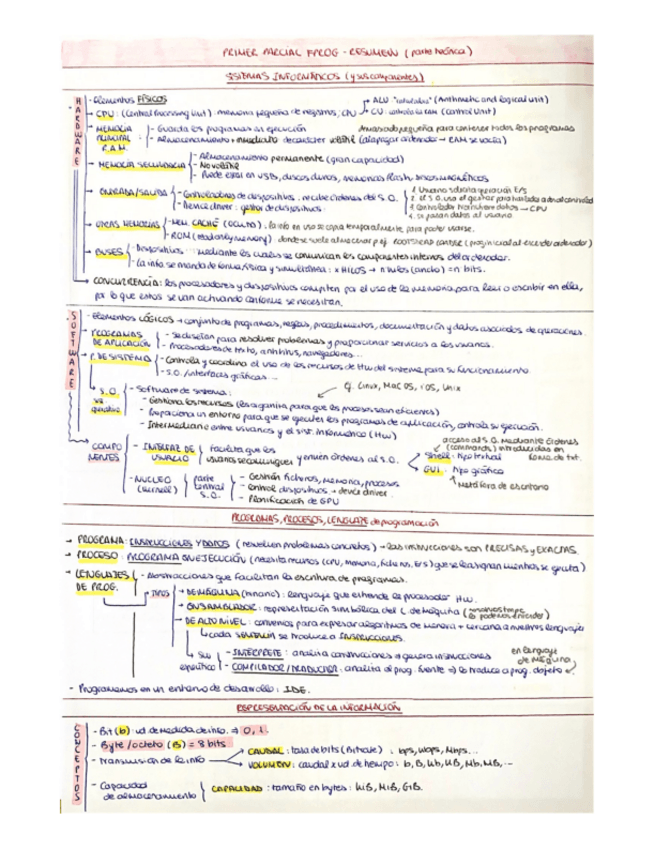 PRIMER PARCIAL FPROG - RESUMEN (parte teórica)
SISTEMAS INFORMÁTICOS (y sus componentes)
HARDWARE
- Elementos FÍSICOS
→ CPU: (Central Processing Unit): memoria pequeña de registros, CPU
→ ALU "calculadora" (Arithmetic and logical unit)
→ CU: controla la RAM (Control Unit)
→ MEMORIA PRINCIPAL R.A.M.
- Guarda los programas en ejecución
- Almacenamiento + inmediato de carácter volátil (al apagar ordenador → RAM se vacía)
Demasiado pequeña para contener todos los programas
→ MEMORIA SECUNDARIA
- Almacenamiento permanente (gran capacidad)
- No volátil
- Puede estar en USBs, discos duros, memorias flash, discos MAGNÉTICOS
→ ENTRADA/SALIDA
- Controladores de dispositivos: recibe órdenes del S.O.
- Device driver: gestor de dispositivos.
1. Usuario solicita operación E/S
2. El S.O. usa el gestor para
3. Controlador transfiere datos → CPU
4. se pasan datos al usuario.
→ OTRAS MEMORIAS
- MEM. CACHÉ (OCULTA): la info en uso se copia temporalmente para poder usarse.
- ROM (Read only memory): donde se suele almacenar p.ej. BOOTSTRAP (prog inicial al encender ordenador)
→ BUSES
- Dispositivos mediante los cuales se comunican los componentes internos del ordenador.
- La info se manda de forma física y simultánea: x HILOS → nºhilos (ancho) = n bits.
→ CONCURRENCIA: los procesadores y dispositivos compiten por el uso de la memoria para leer o escribir en ella,
por lo que estos se van activando conforme se necesitan.
SOFTWARE
- Elementos LÓGICOS → conjunto de programas, reglas, procedimientos, documentación y datos asociados de operaciones.
→ PROGRAMAS DE APLICACIÓN
- Se diseñan para resolver problemas y proporcionar servicios a los usuarios.
- Procesadores de texto, antivirus, navegadores...
→ P. DE SISTEMA
- Controla y coordina el uso de los recursos de Hw del sistema para su funcionamiento.
- S.O. / interfaces gráficas...
→ S.O.
- Software de sistema:
Ej. Linux, Mac OS, iOS, Unix
- Gestiona los recursos (los organiza para que los procesos sean eficientes)
- Proporciona un entorno para que se ejecuten los programas de aplicación, controla su ejecución.
- Intermediario entre usuarios y el sist. informático (Hw)
COMPONENTES
- INTERFAZ DE USUARIO
facilita que los usuarios se comuniquen y envíen órdenes al S.O.
acceso al S.O. mediante órdenes
(commands) introducidas en
forma de txt.
Shell: tipo textual
GUI: tipo gráfico
↑ Metáfora de escritorio
- NÚCLEO (Kernel)
parte central S.O.
- Gestión ficheros, memoria, procesos
- Control dispositivos → device driver.
- Planificación de CPU
PROGRAMAS, PROCESOS, LENGUAJE de programación
→ PROGRAMA: INSTRUCCIONES Y DATOS (resuelven problemas concretos) → las instrucciones son PRECISAS y EXACTAS.
→ PROCESO: PROGRAMA EN EJECUCIÓN (necesita recursos (CPU, memoria, ficheros, E/S) que se le asignan mientras se ejecuta)
→ LENGUAJES DE PROG.
- Abstracciones que facilitan la escritura de programas.
TIPOS
→ DE MÁQUINA (binario): lenguaje que entiende el procesador Hw.
→ ENSAMBLADOR: representación simbólica del L. de Máquina
→ DE ALTO NIVEL: convenios para expresar algoritmos de manera + cercana a nuestros lenguajes
↳ cada SENTENCIA se traduce a INSTRUCCIONES.
↳ SW específico
- INTÉRPRETE: analiza construcciones → genera instrucciones
en lenguaje de MÁQUINA
- COMPILADOR/TRADUCTOR: analiza el prog. fuente → lo traduce a prog. objeto
- Programamos en un entorno de desarrollo: IDE.
REPRESENTACIÓN DE LA INFORMACIÓN
CONCEPTOS
- Bit (b): ud de medida de info. ⇒ 0, 1.
- Byte/octeto (B) = 8 bits
- Transmisión de la info
→ CAUDAL: tasa de bits (Bitrate): bps, Kbps, Mbps...
→ VOLUMEN: caudal x ud de tiempo: b, B, Kb, KB, Mb, MB, ...
- Capacidad de almacenamiento
CAPACIDAD: tamaño en bytes: KiB, MiB, GiB.